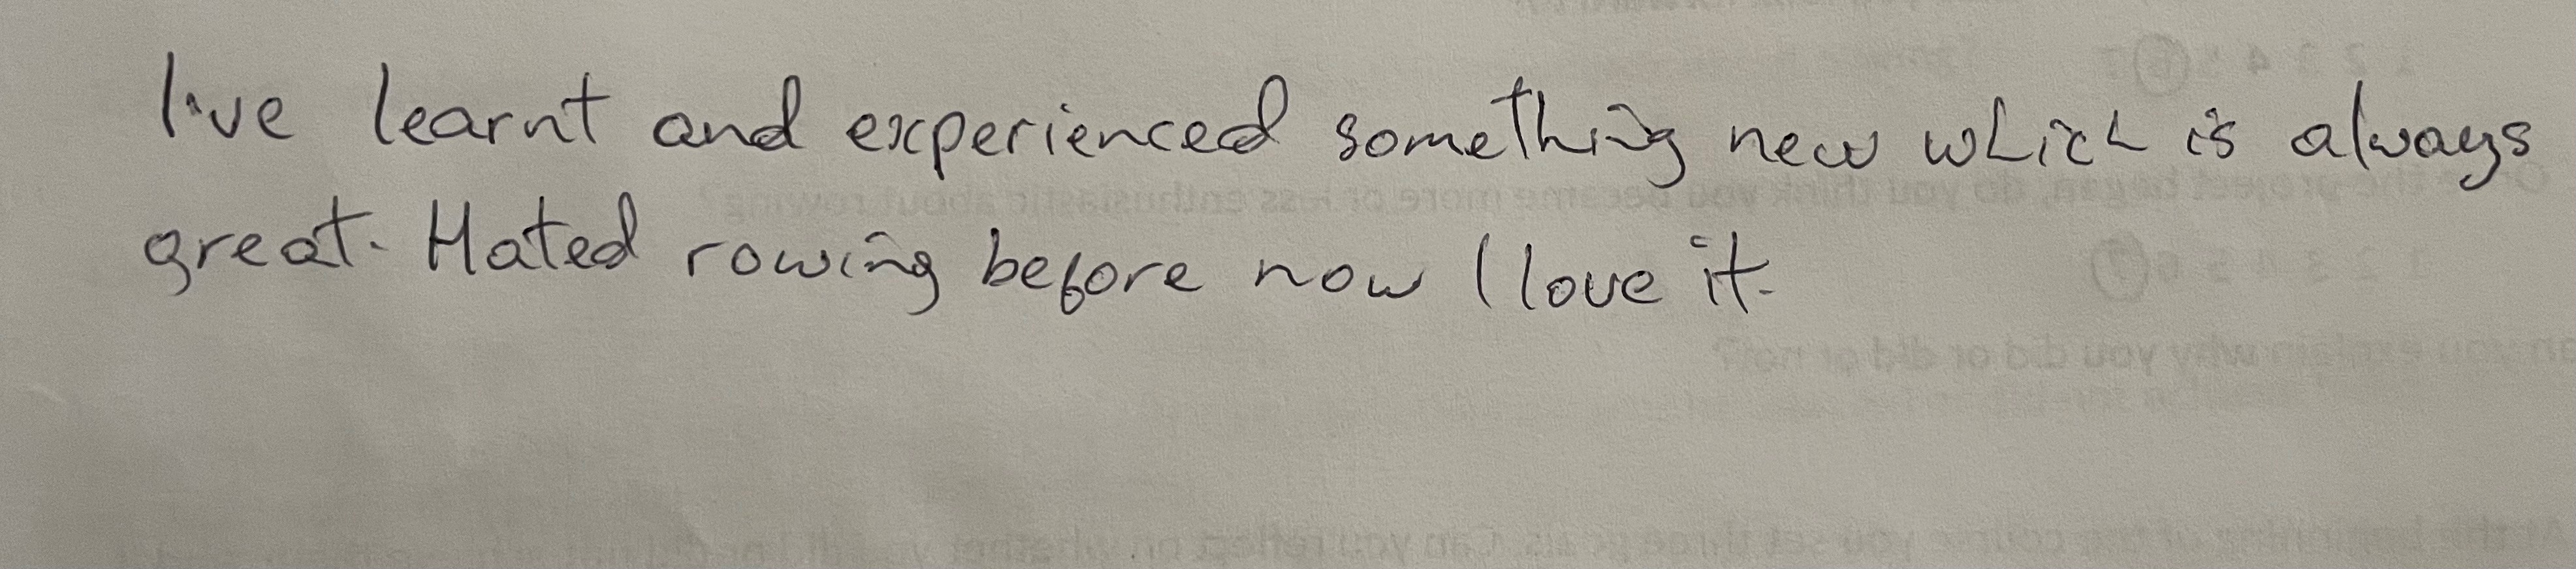 I've learnt and experienced something new which is always
great. Hated rowing before now I love it.